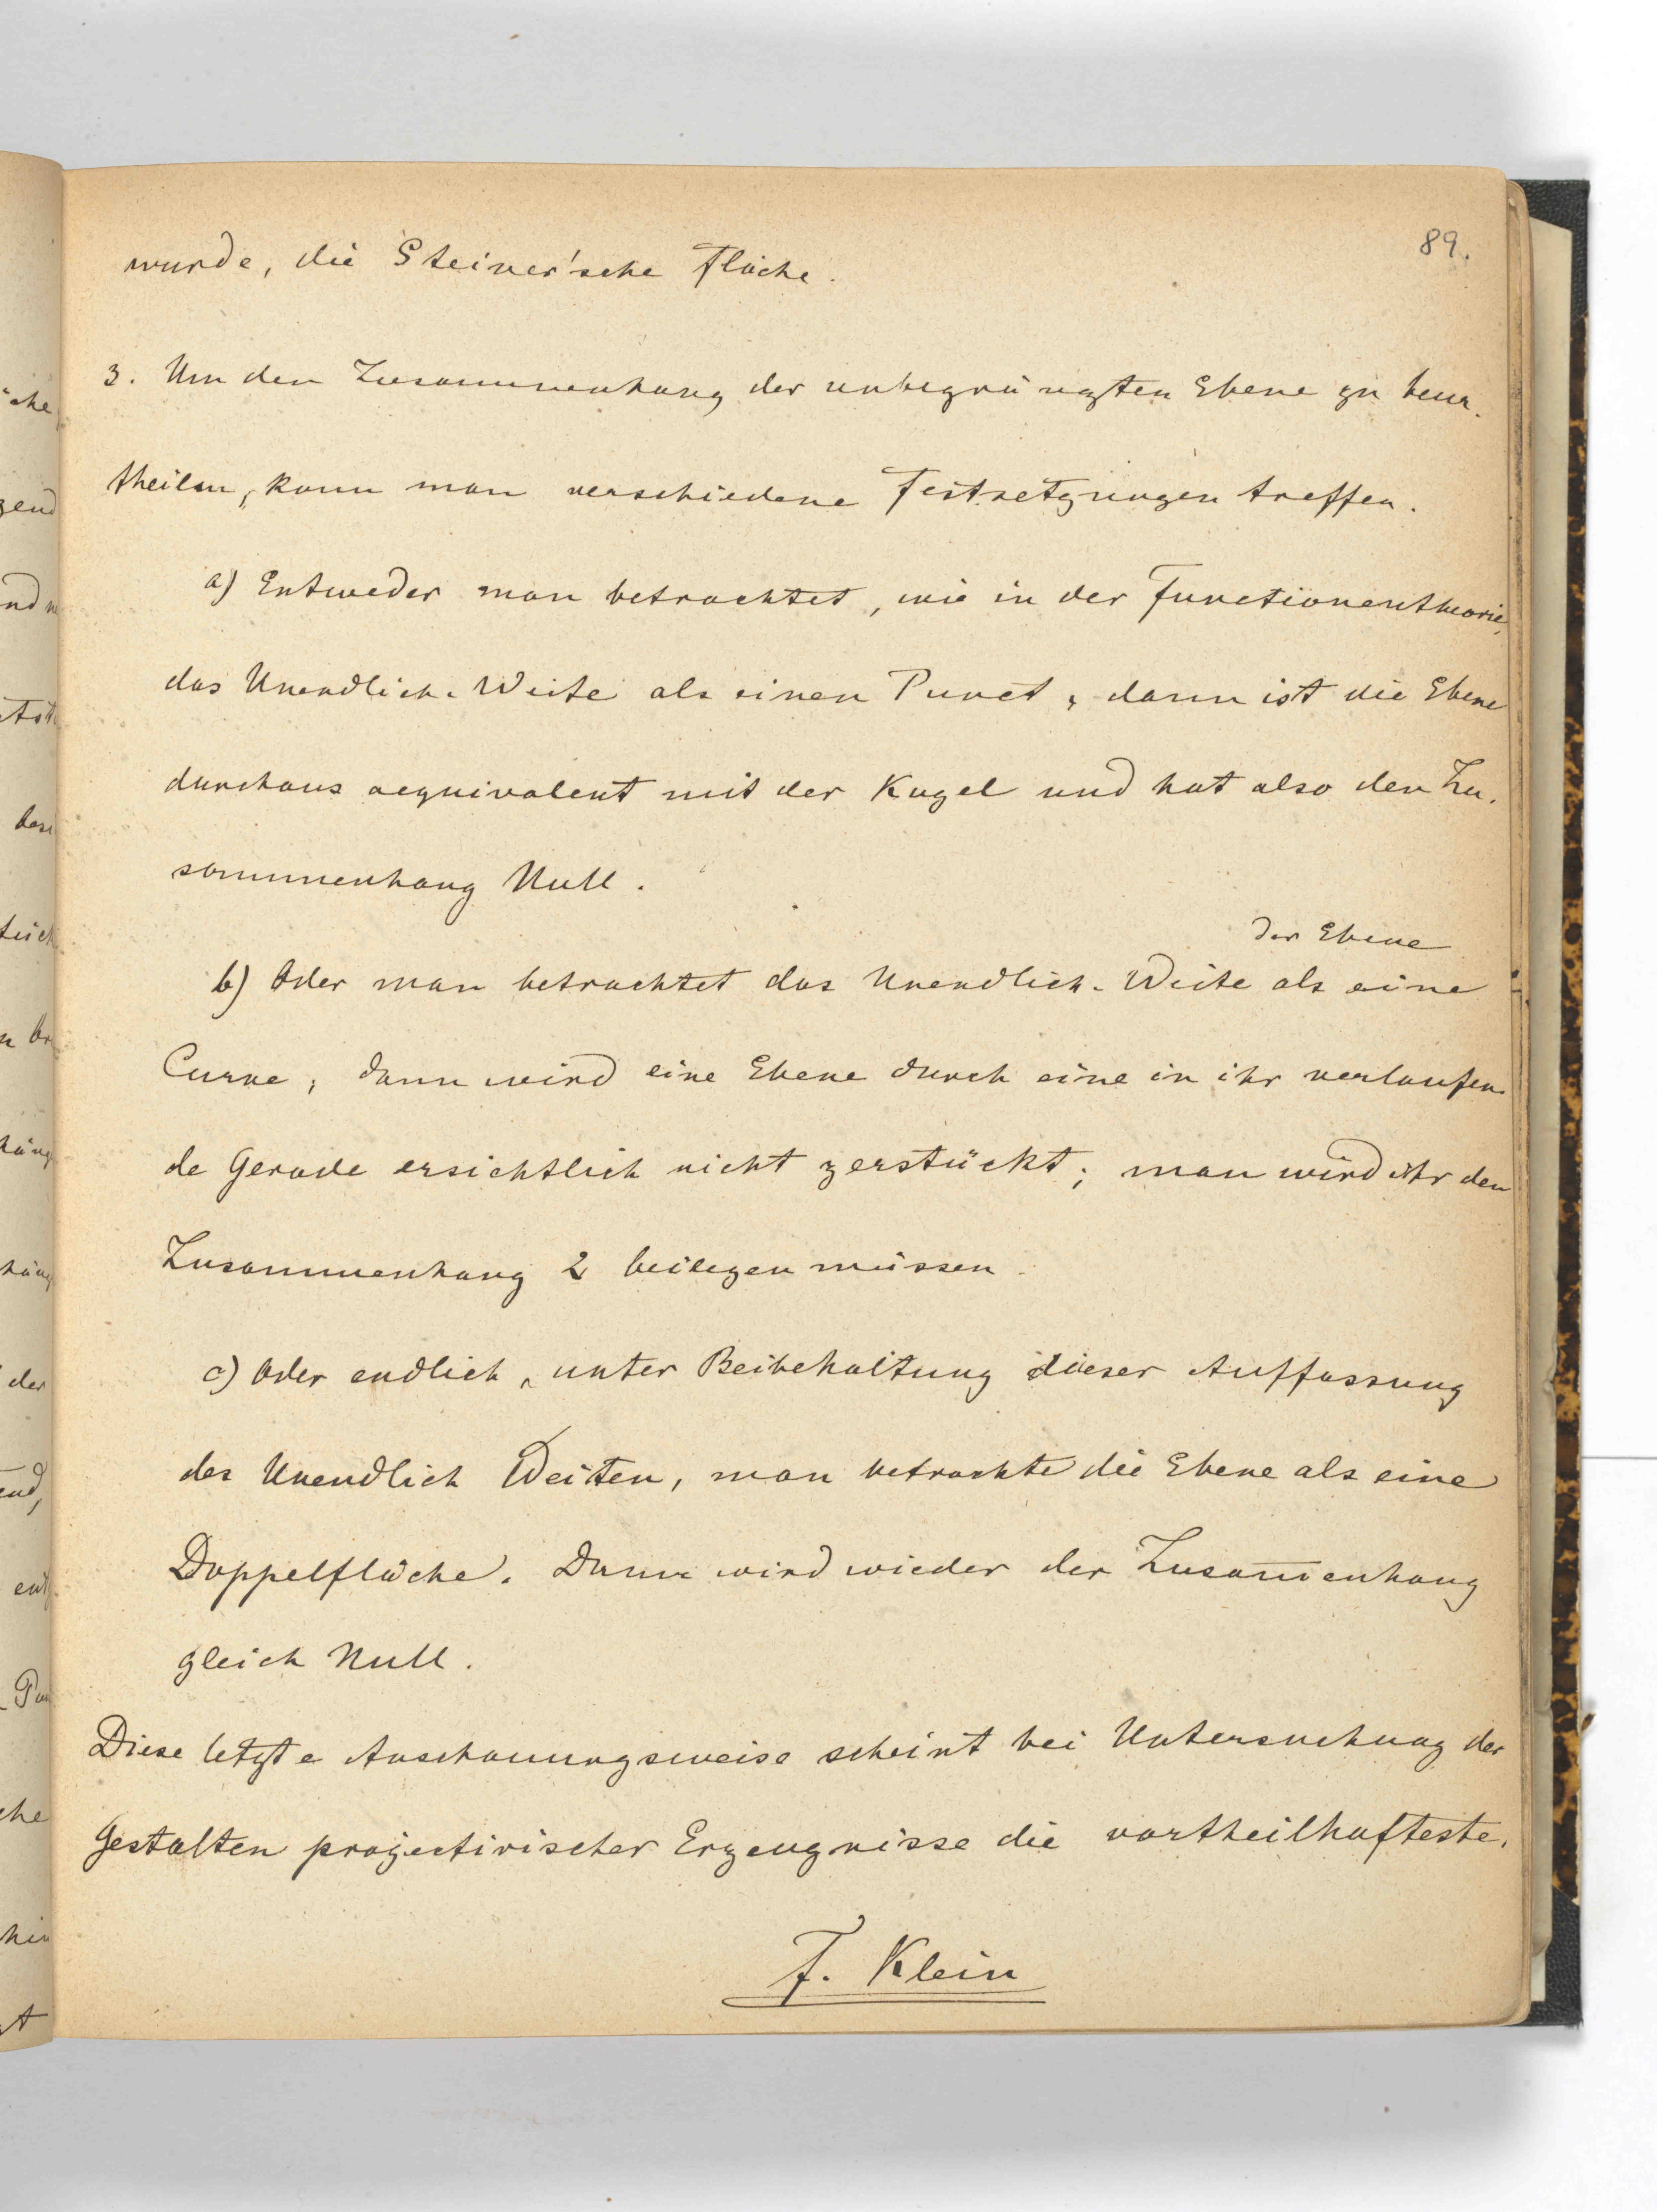 89.
wurde, die Steiner'sche Fläche.
3. Um den Zusammenhang der unbegränzten Ebene zu beur-
theilen, kann man verschiedene Festsetzungen treffen.
a) Entweder man betrachtet, wie in der Functionentheorie,
das Unendlich-Weite als einen Punct, dann ist die Ebene
durchaus aequivalent mit der Kugel und hat also den Zu-
sammenhang Null.
der Ebene
b) Oder man betrachtet das Unendlich-Weite als eine
Curve, dann wird eine Ebene durch eine in ihr verlaufen-
de Gerade ersichtlich nicht zerstückt; man wird ihr den
Zusammenhang 2 beilegen müssen.
c) Oder endlich, unter Beibehaltung dieser Auffassung
des Unendlich Weiten, man betrachte die Ebene als eine
Doppelfläche. Dann wird wieder der Zusam̅enhang
gleich Null.
Diese letzte Anschauungsweise scheint bei Untersuchung der
Gestalten projectivischer Erzeugnisse die vortheilhafteste.
F. Klein